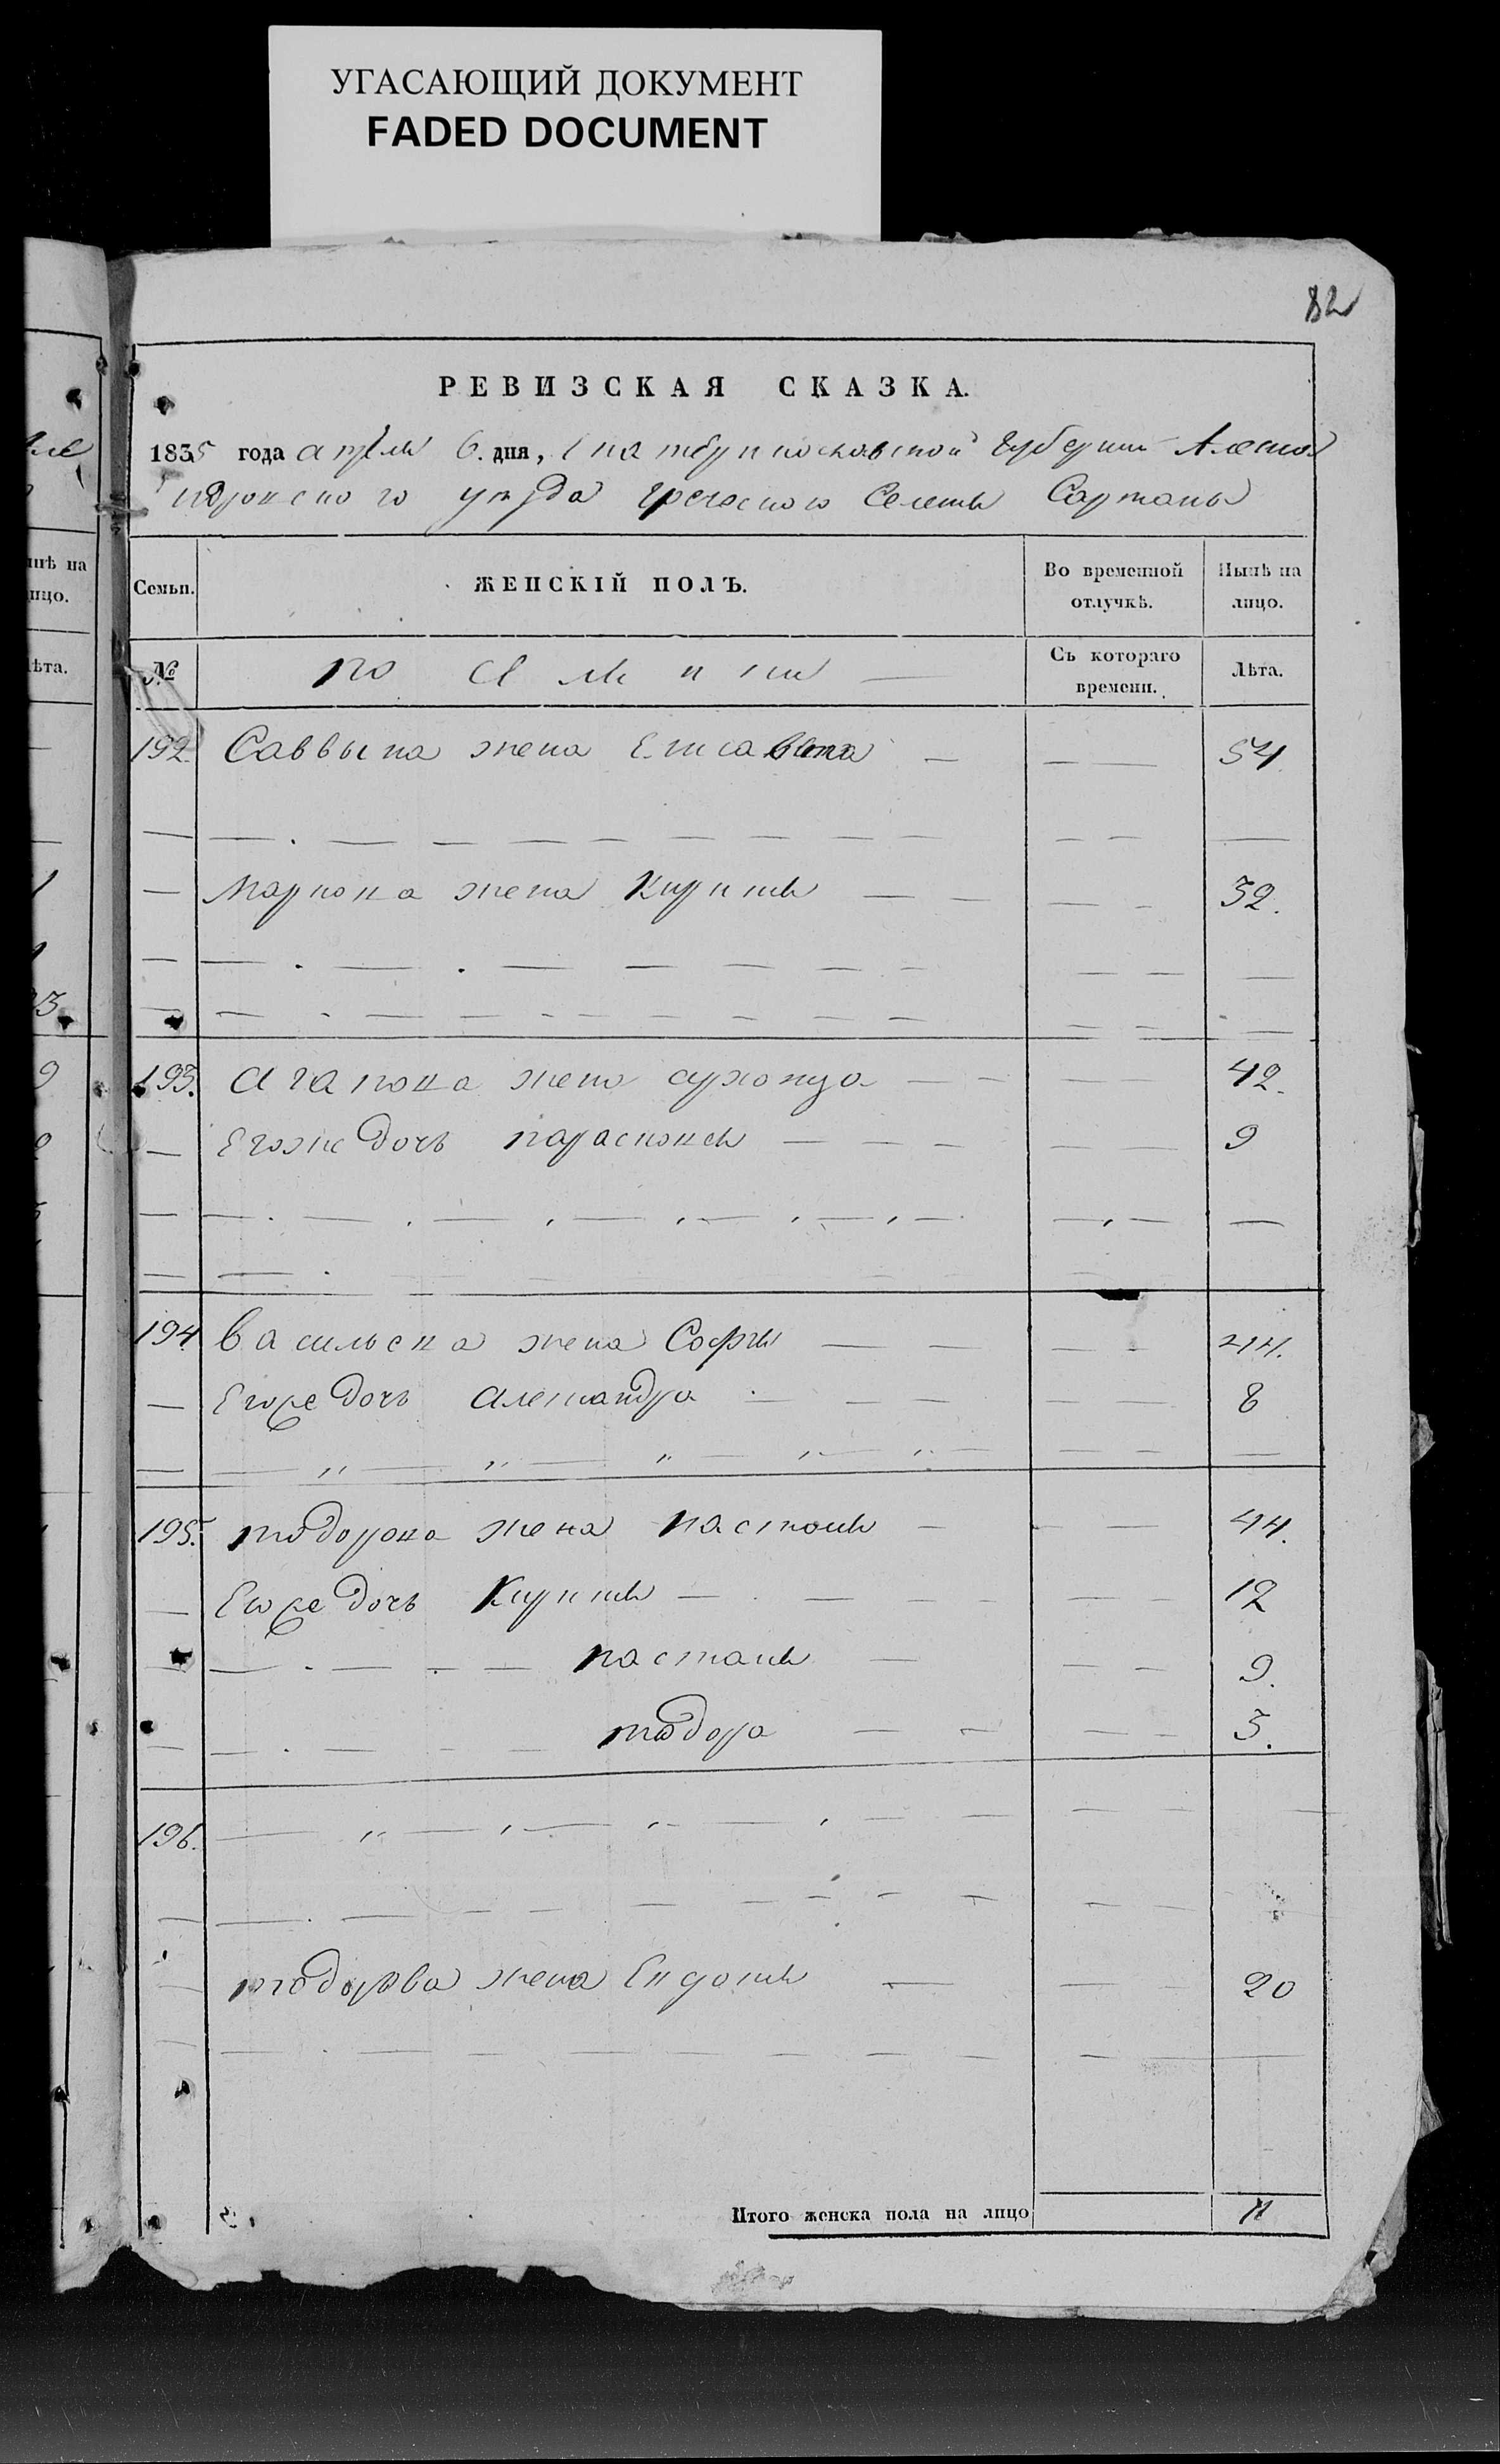 УГАСАЮЩИЙ ДОКУМЕНТ
FADED DOCUMENT
82
РЕВИЗСКАЯ СКАЗКА.
1835 года апреля 6. дня, Екатеринославской губернии Алекса
ндровского уезда греческого Селения Сартаны
Семьи. ЖЕНСКІЙ ПОЛЪ. Во временной отлучкѣ. Нынѣ на лицо.
№ Съ котораго времени. Лѣта.
192 Саввы на жена Елисавета — 54
— Маркона жена Кирикия — 32.
193. Агапона жена — 42.
— Егоже дочь параскокея — 9
194 василь сна жена София — 44.
— Егоже дочь Александра — 8
195. тодорона жена настасия — 44.
— Егоже дочь Кирикия — 12
настасия — 9.
тодора — 3.
196.
тодорова жена — 20
Итого женска пола на лицо 11